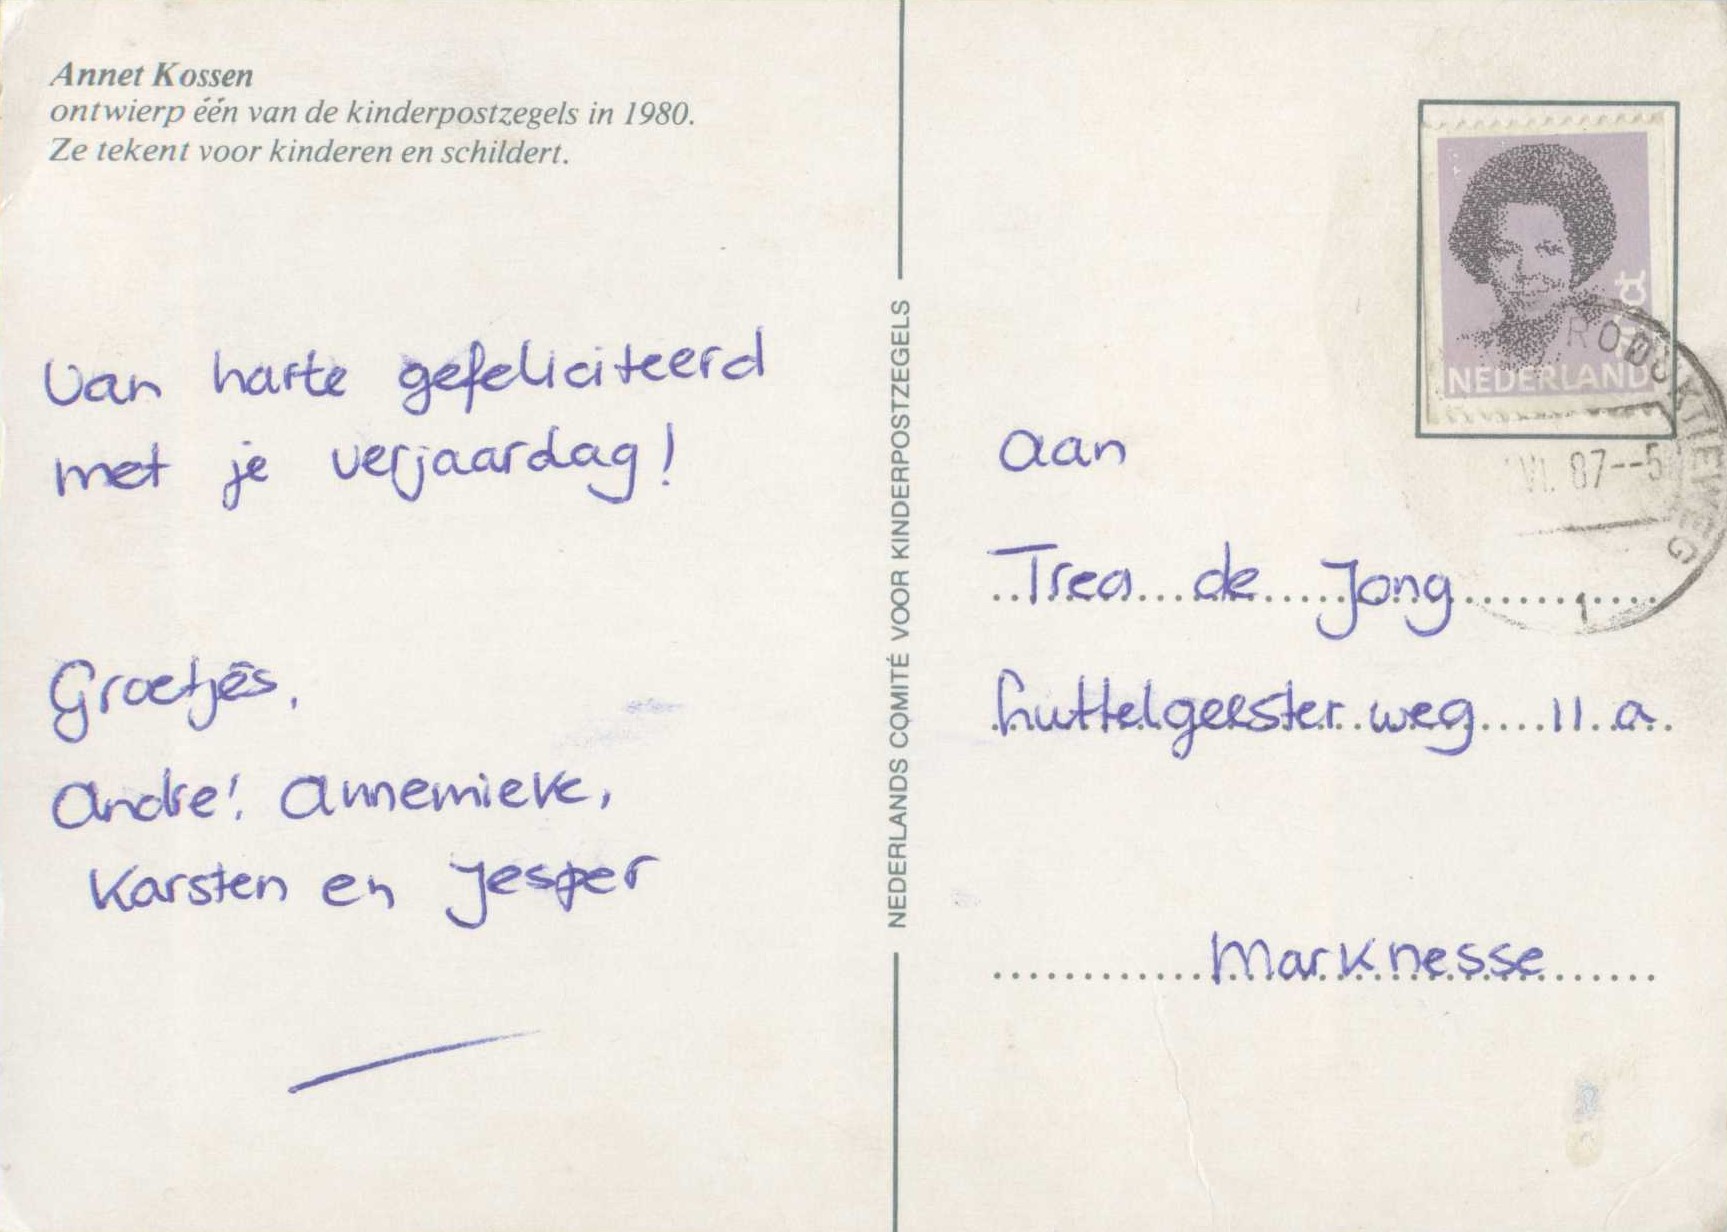 Annet Kossen
ontwierp één van de kinderpostzegels in 1980.
Ze tekent voor kinderen en schildert.
Van harte gefeliciteerd
met je verjaardag!
Groetjes,
Andre! Annemieke,
Karsten en Jesper
NEDERLANDS COMITÉ VOOR KINDERPOSTZEGELS
ct
NEDERLAND
VI. 87--5
1
aan
Trea de Jong
Luttelgeesterweg 11 a.
Marknesse